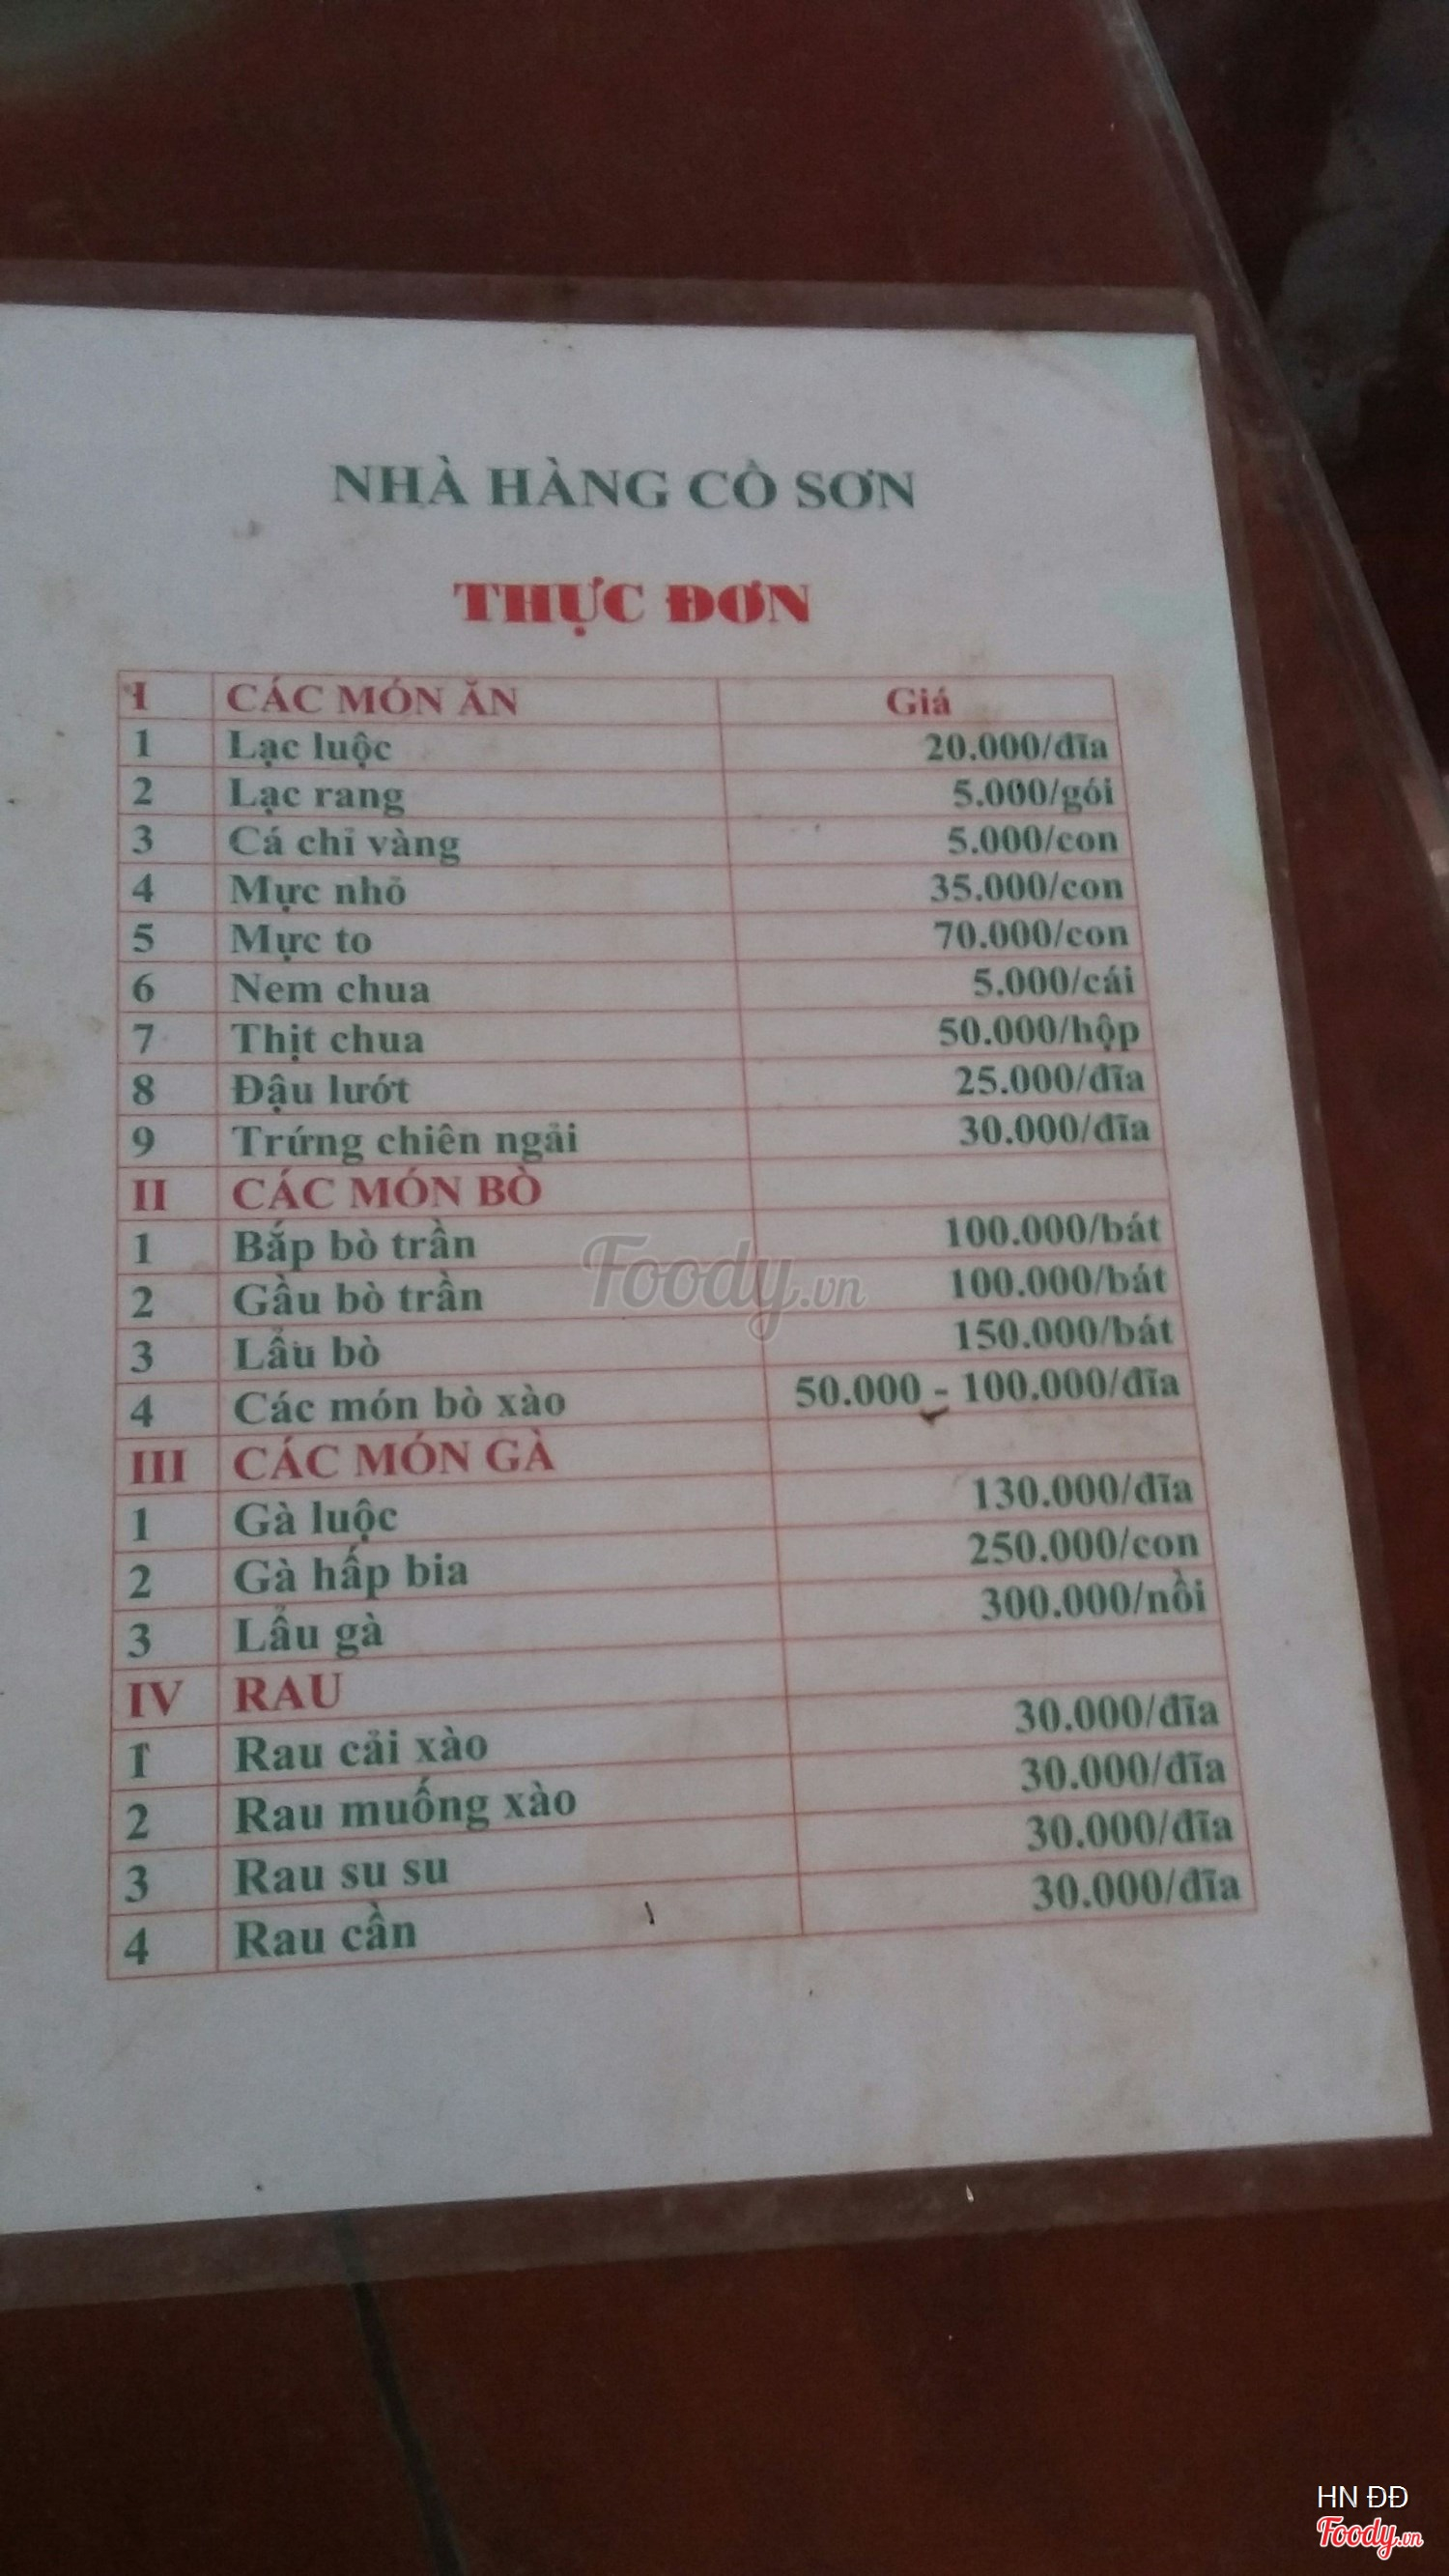 NHÀ HÀNG CÔ SƠN
THỰC ĐƠN
I CÁC MÓN ĂN Giá
1 Lạc luộc 20.000/đĩa
2 Lạc rang 5.000/gói
3 Cá chỉ vàng 5.000/con
4 Mực nhỏ 35.000/con
5 Mực to 70.000/con
6 Nem chua 5.000/cái
7 Thịt chua 50.000/hộp
8 Đậu lướt 25.000/đĩa
9 Trứng chiên ngải 30.000/đĩa
II CÁC MÓN BÒ
1 Bắp bò trần 100.000/bát
2 Gầu bò trần 100.000/bát
3 Lẩu bò 150.000/bát
4 Các món bò xào 50.000 - 100.000/đĩa
III CÁC MÓN GÀ
1 Gà luộc 130.000/đĩa
2 Gà hấp bia 250.000/con
3 Lẩu gà 300.000/nồi
IV RAU
1 Rau cải xào 30.000/đĩa
2 Rau muống xào 30.000/đĩa
3 Rau su su 30.000/đĩa
4 Rau cần 30.000/đĩa
Foody.vn
HN ĐĐ
Foody.vn